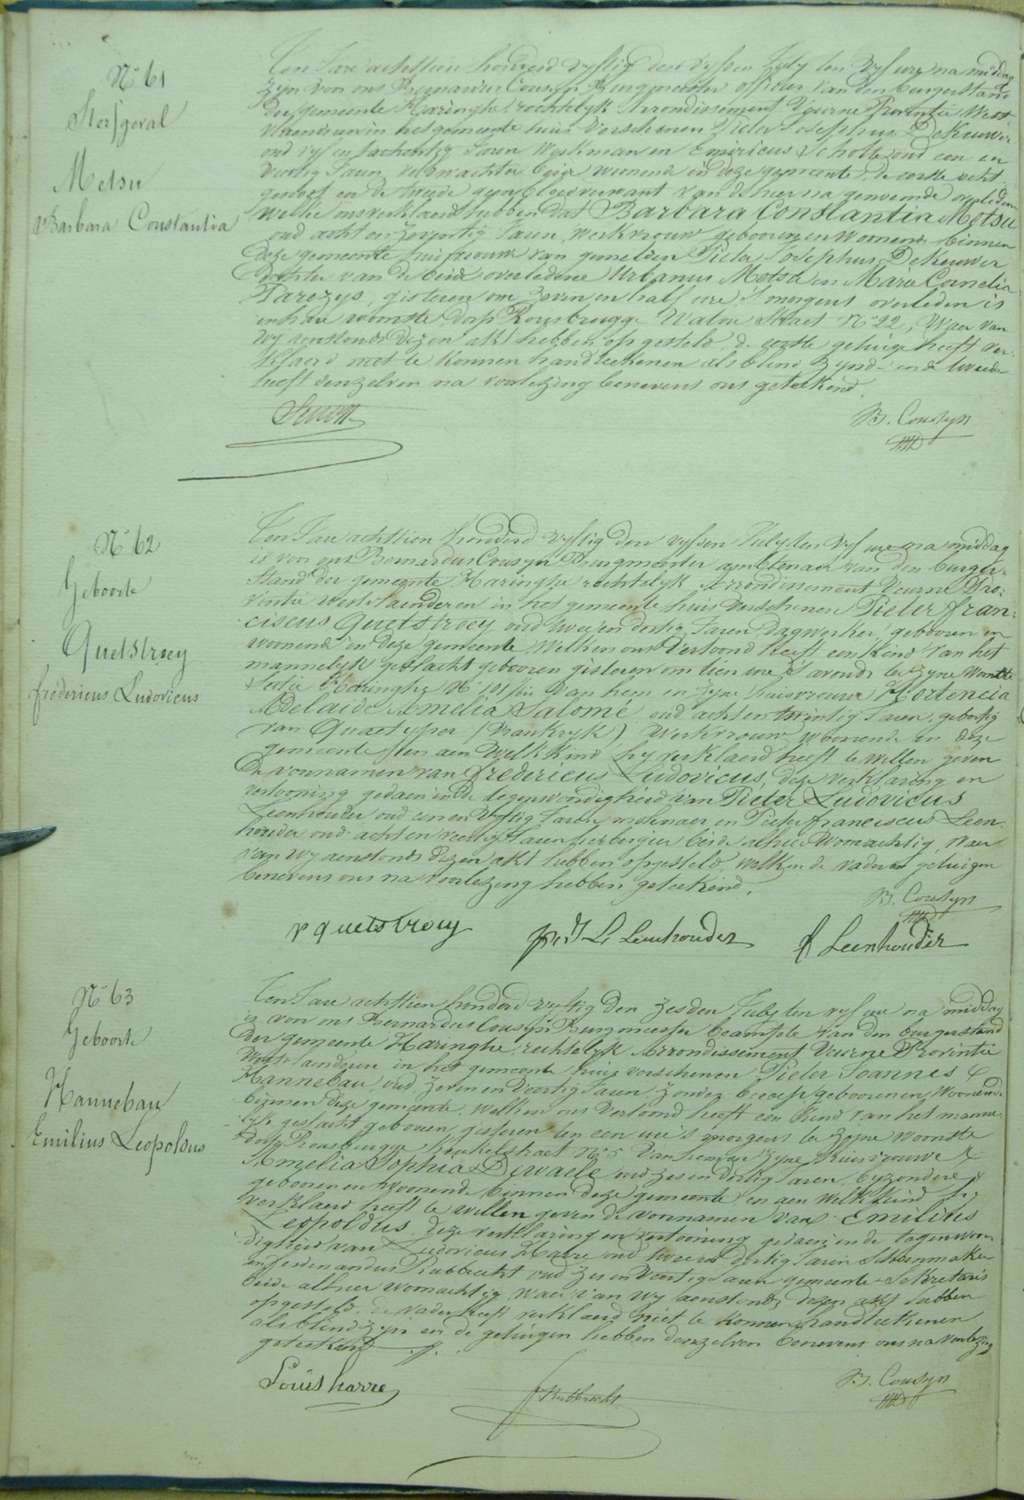 N° 61
Sterfgeval
Metsu
Barbara Constantia
Ten Jare achttien honderd vyftig den vyfden July ten vyf ure na middag
zyn voor ons Bernardus Cousyn Burgmeester officier van den burgerstand
der gemeente Haringhe rechtelyk Arrondissement Veurne Provintie West
Vlaenderen in het gemeente huis verschenen Pieter Josephus Dekeuwer
oud vyf en tachentig Jaren Werkman en Emericus Scholte oud een en
veertig Jaren veldwachter beide woonende in deze gemeente, de eerste echt
genoot en de tweede geen bloedverwant van de hier na genoemde overledene
welke ons verklaerd hebben dat Barbara Constantia Metsu
oud acht en zeventig Jaren, werkvrouw geboren en woonende binnen
deze gemeente huisvrouw van gemelden Pieter Josephus Dekeuwer
dochter van de beide overledene Urbanus Metsu en Marie Cornelia
Parezys, gisteren om zeven en half ure 's morgens overleden is
in hare woonste dorp Rousbrugge Watou Straet N° 22, Waer van
wy aenstonds dezen akt hebben opgesteld, de eerste getuige heeft ver-
klaerd niet te konnen handteekenen als blind zynde en de tweede
heeft denzelven na voorlezing benevens ons geteekend.
B. Cousyn
N° 62
Geboorte
Quetstroey
fredericus Ludovicus
Ten Jare achttien honderd vyftig den vyfden July ten vyf ure na middag
is voor ons Bernardus Cousyn Burgmeester ambtenaer van den burger-
stand der gemeente Haringhe rechtelyk Arrondissement Veurne Pro-
vintie West Vlaenderen in het gemeente huis verschenen Pieter fran-
ciscus Quetstroey oud twee en dertig Jaren dagwerker, geboren en
woonende in deze gemeente welken ons vertoond heeft een kind van het
mannelyk geslacht geboren gisteren om tien ure 's avonds te zyne woonste
Sectie Haringhe N° van hem en zyne huisvrouwe Hortencia
Adelaide Amelia Salomé oud acht en twintig Jaren, geboortig
van Quaetyper (Vrankryk) Werkvrouw woonende in deze
gemeente en aen welk kind hy verklaerd heeft te willen geven
de voornamen van fredericus Ludovicus, deze verklaring en
vertooning gedaen in de tegenwoordigheid van Pieter Ludovicus
Leenhouder oud een en vyftig Jaren molenaer en Pieter franciscus Leen-
houder oud acht en veertig Jaren herbergier beide alhier woonachtig, waer
van wy aenstonds dezen akt hebben opgesteld, welken de vader en getuigen
benevens ons na voorlezing hebben geteekend.
B. Cousyn
P quetstroey
L Leenhouder
f Leenhouder
N° 63
Geboorte
Hannebau
Emilius Leopoldus
Ten Jare achttien honderd vyftig den zesden July ten vyf ure na middag
is voor ons Bernardus Cousyn Burgmeester beampte van den burgerstand
der gemeente Haringhe rechtelyk Arrondissement Veurne Provintie
West Vlaenderen in het gemeente huis verschenen Pieter Joannes
Hannebau, oud zeven en veertig Jaren zonder beroep geboren en woonende
binnen deze gemeente, welken ons vertoond heeft een kind van het manne-
lyk geslacht geboren gisteren ten een ure 's morgens te zyne woonste
dorp Rousbrugge straet N° 5 van hem en zyne huisvrouwe
Amelia Sophia Dewaele oud zes en dertig Jaren, byzondere
geboren en woonende binnen deze gemeente en aen welk kind hy
verklaerd heeft te willen geven de voornamen van Emilius
Leopoldus, deze verklaring en vertooning gedaen in de tegenwoor-
digheid van Ludovicus Harre oud twee en dertig Jaren Schoenmaker
en ferdinandus Rubbrecht oud zes en veertig Jaren gemeente Sekretaris
beide alhier woonachtig waer van wy aenstonds dezen akt hebben
opgesteld, de vader heeft verklaerd niet te konnen handteekenen
als blind zyn en de getuigen hebben denzelven benevens ons na voorlezing
geteekend.
Louis harre
Rubbrecht
B. Cousyn